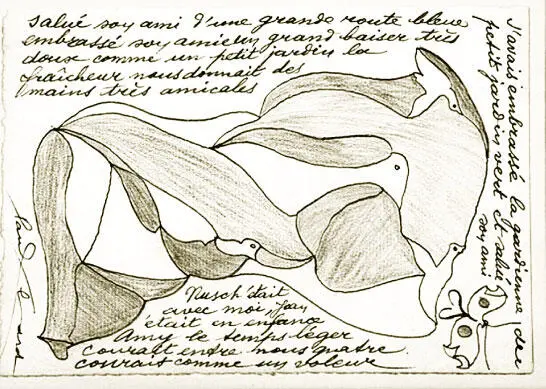 salué soy ami d'une grande route bleue
embrassé soy amie un grand baiser très
doux comme un petit jardin la
fraîcheur nous donnait des
mains très amicales
J'avais embrassé la gardienne du
petit jardin vert et salué
soy ami
Nusch était
avec moi,
était en enfance
Amy le temps léger
courait entre nous quatre
courait comme un voleur